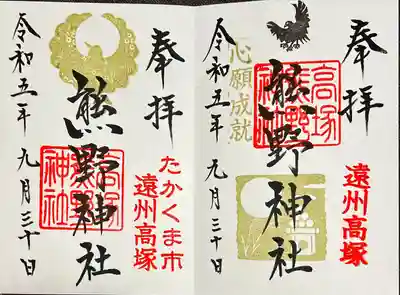 奉拝
心願成就
高塚
熊野
神社
熊野神社
遠州高塚
令和五年 九月三十日
奉拝
熊野神社
高塚
熊野
神社
たかくま市
遠州高塚
令和五年 九月三十日